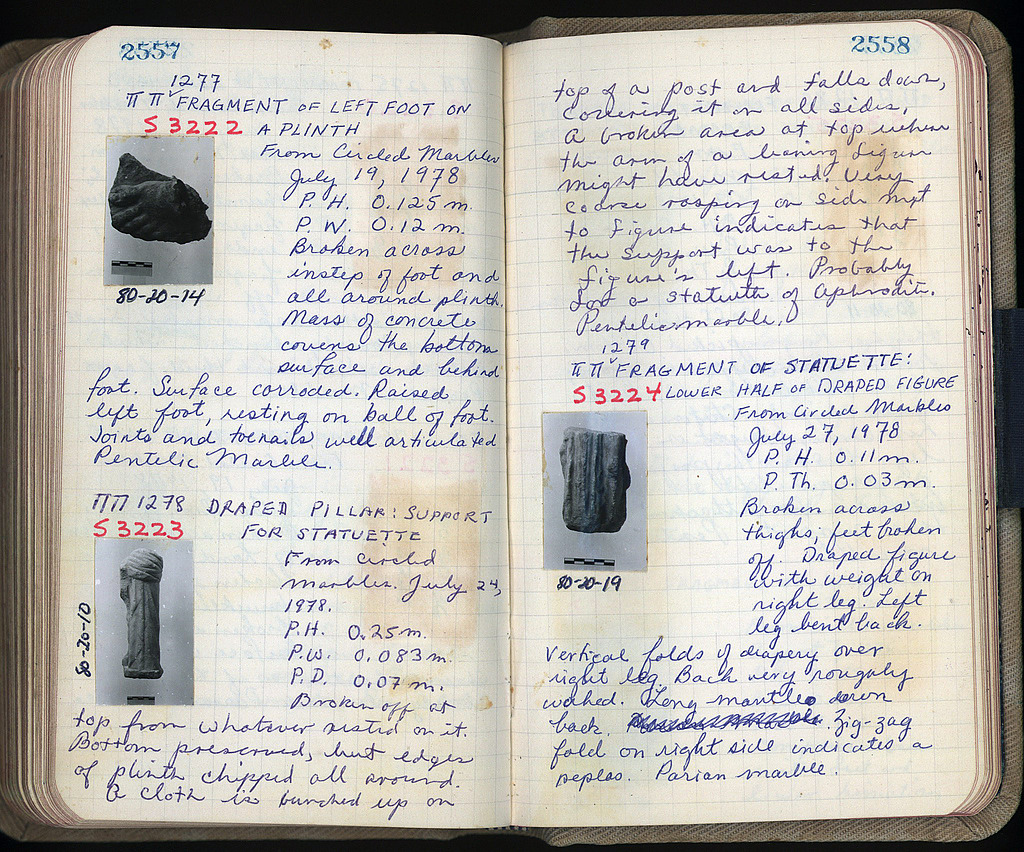 2557
1277
ΠΠ ˅ FRAGMENT OF LEFT FOOT ON
S 3222 A PLINTH
From Circled Marbles
July 19, 1978
P. H. 0.125 m.
P. W. 0.12 m.
Broken across
instep of foot and
all around plinth.
Mass of concrete
covers the bottom
surface and behind
80-20-14
foot. Surface corroded. Raised
left foot, resting on ball of foot.
Joints and toenails well articulated
Pentelic Marble.
ΠΠ 1278 DRAPED PILLAR: SUPPORT
S 3223 FOR STATUETTE
From circled
marbles. July 24,
1978.
P.H. 0.25 m.
P.W. 0.083 m.
P.D. 0.07 m.
Broken off at
80-20-10
top from whatever rested on it.
Bottom preserved, but edges
of plinth chipped all around.
A cloth is bunched up on
2558
top of a post and falls down,
covering it on all sides,
A broken area at top where
the arm of a leaning figure
might have rested. Very
coarse rasping on side next
to figure indicates that
the support was to the
figure's left. Probably
for a statuette of Aphrodite.
Pentelic marble.
1279
ΠΠ ˅ FRAGMENT OF STATUETTE:
S 3224 LOWER HALF OF DRAPED FIGURE
From Circled Marbles
July 27, 1978
P. H. 0.11 m.
P. Th. 0.03 m.
Broken across
thighs; feet broken
off. Draped figure
with weight on
right leg. Left
leg bent back.
80-20-19
Vertical folds of drapery over
right leg. Back very roughly
worked. Long mantle down
back. Zig-zag
fold on right side indicates a
peplos. Parian marble.